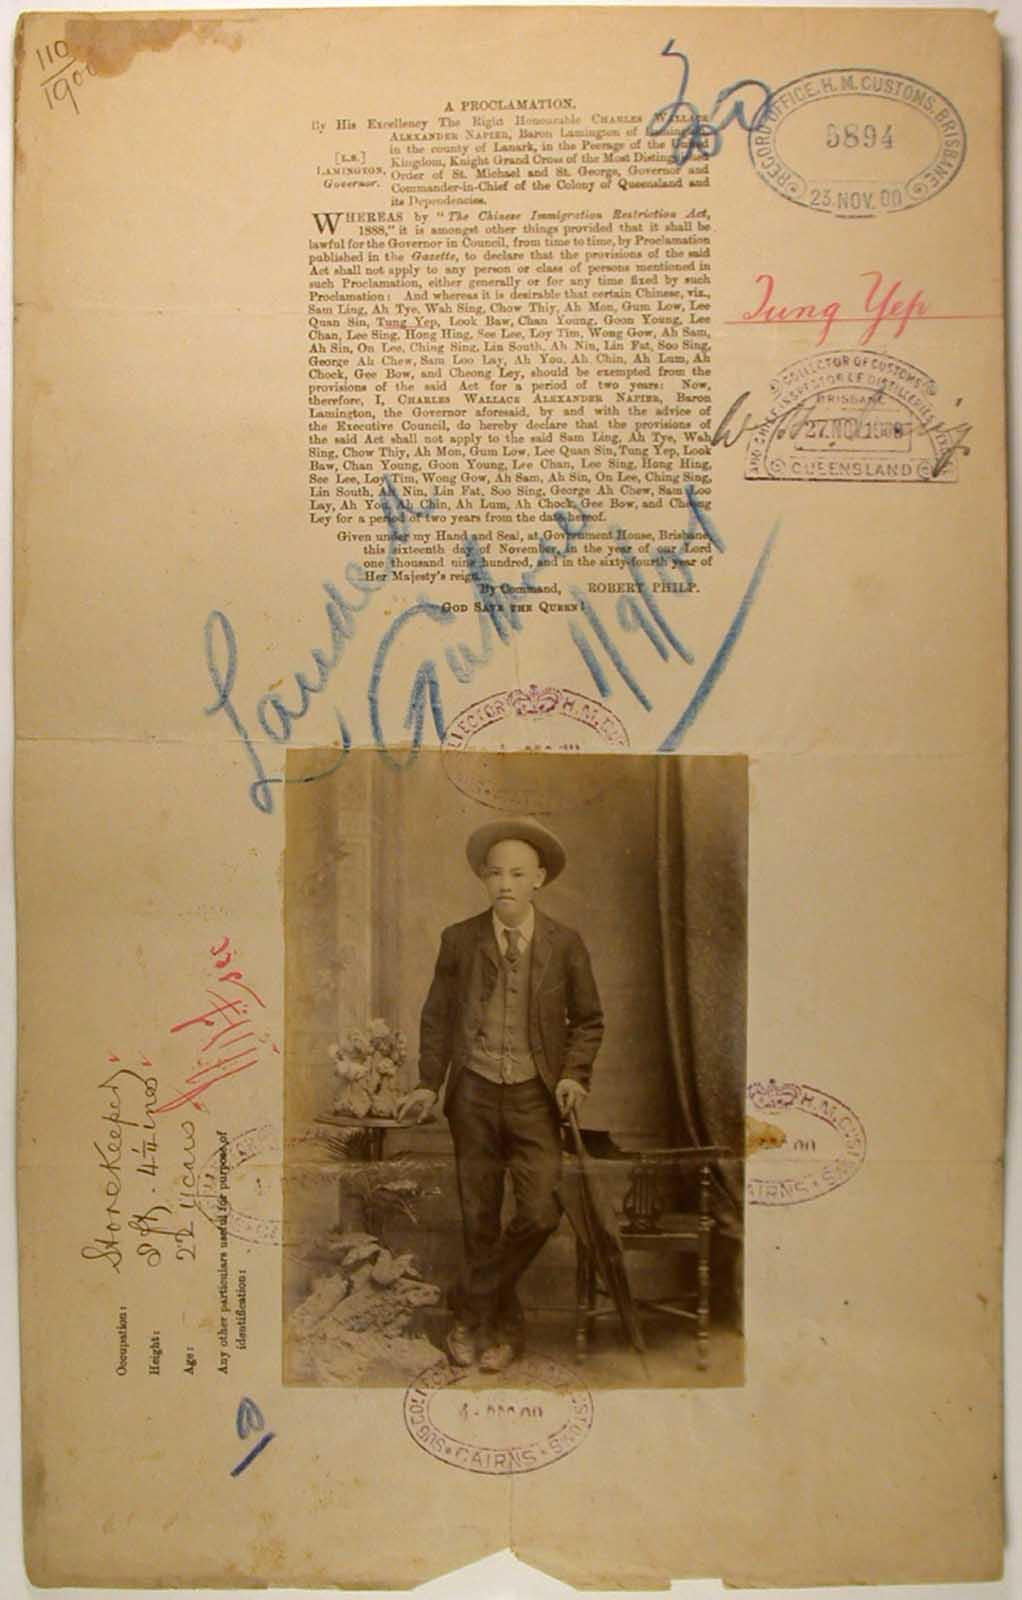 110
1900
A PROCLAMATION.
By His Excellency The Right Honourable CHARLES WALLACE
ALEXANDER NAPIER, Baron Lamington of Lamington,
in the county of Lanark, in the Peerage of the United
[L.S.]
Kingdom, Knight Grand Cross of the Most Distinguished
LAMINGTON,
Order of St. Michael and St. George, Governor and
Governor.
Commander-in-Chief of the Colony of Queensland and
its Dependencies.
WHEREAS by "The Chinese Immigration Restriction Act,
1888," it is amongst other things provided that it shall be
lawful for the Governor in Council, from time to time, by Proclamation
published in the Gazette, to declare that the provisions of the said
Act shall not apply to any person or class of persons mentioned in
such Proclamation, either generally or for any time fixed by such
Proclamation: And whereas it is desirable that certain Chinese, viz.,
Sam Ling, Ah Tye, Wah Sing, Chow Thiy, Ah Mon, Gum Low, Lee
Quan Sin, Tung Yep, Look Baw, Chan Young, Goon Young, Lee
Chan, Lee Sing, Hong Hing, See Lee, Loy Tim, Wong Gow, Ah Sam,
Ah Sin, On Lee, Ching Sing, Lin South, Ah Nin, Lin Fat, Soo Sing,
George Ah Chew, Sam Loo Lay, Ah You, Ah Chin, Ah Lum, Ah
Chock, Gee Bow, and Cheong Ley, should be exempted from the
provisions of the said Act for a period of two years: Now,
therefore, I, CHARLES WALLACE ALEXANDER NAPIER, Baron
Lamington, the Governor aforesaid, by and with the advice of
the Executive Council, do hereby declare that the provisions of
the said Act shall not apply to the said Sam Ling, Ah Tye, Wah
Sing, Chow Thiy, Ah Mon, Gum Low, Lee Quan Sin, Tung Yep, Look
Baw, Chan Young, Goon Young, Lee Chan, Lee Sing, Hong Hing,
See Lee, Loy Tim, Wong Gow, Ah Sam, Ah Sin, On Lee, Ching Sing,
Lin South, Ah Nin, Lin Fat, Soo Sing, George Ah Chew, Sam Loo
Lay, Ah You, Ah Chin, Ah Lum, Ah Chock, Gee Bow, and Cheong
Ley for a period of two years from the date hereof.
Given under my Hand and Seal, at Government House, Brisbane,
this sixteenth day of November, in the year of our Lord
one thousand nine hundred, and in the sixty-fourth year of
Her Majesty's reign.
By Command, ROBERT PHILP.
GOD SAVE THE QUEEN!
RECORD OFFICE, H. M. CUSTOMS, BRISBANE
5894
23 NOV. 00
Tung Yep
COLLECTOR OF CUSTOMS
AND CHIEF INSPECTOR OF DISTILLERIES
BRISBANE
27.NOV.1900
QUEENSLAND
Landed
H.M.
H.M. CUSTOMS
00
CAIRNS
SUB COLLECTOR CUSTOMS
4 - DEC 00
CAIRNS
Occupation: Storekeeper
Height: 5 ft. 4 1/2 ines
Age: 22 years
Any other particulars useful for purpose of
identification: